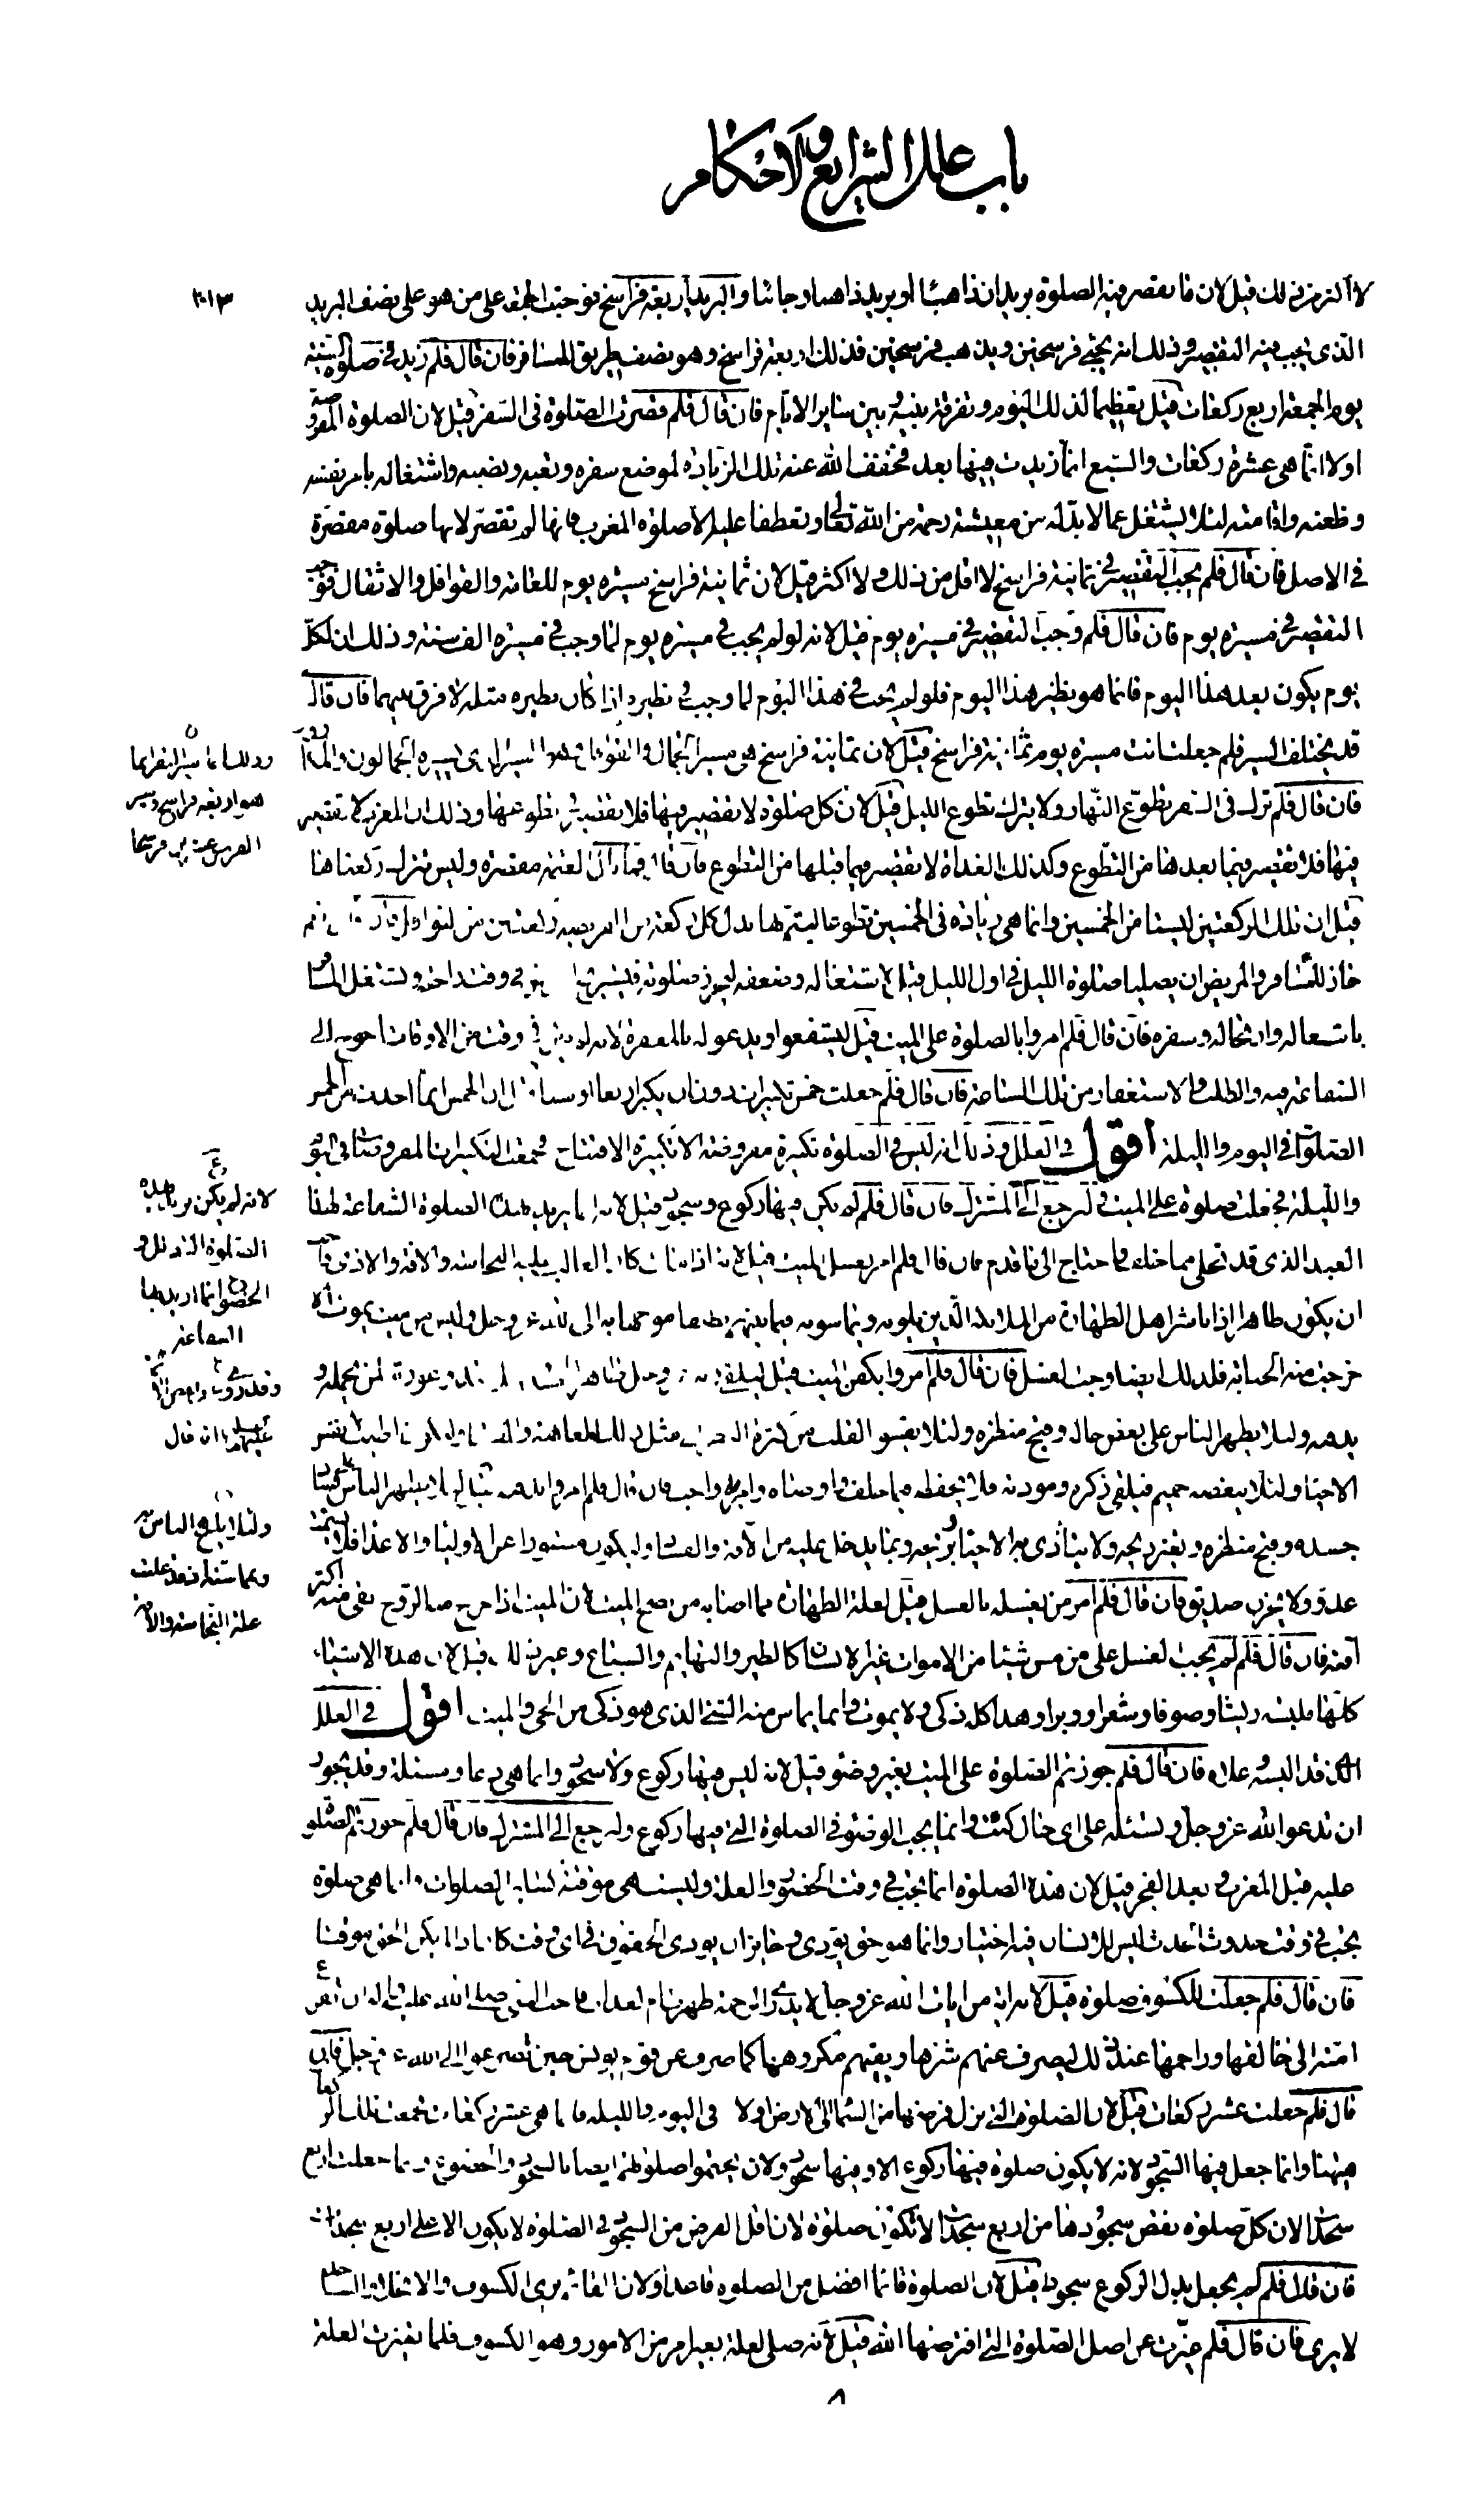 باب علل الشرايع والاحكام
لا اكثر من ذلك قيل لان ما يقصر فيه الصلوة بريدان ذاهبا او بريد ذاهبا وجائيا والبريد اربعة فراسخ فوجبت الجمعة على من هو على نصف البريد
١٠١٣
الذى يجب فيه التقصير وذلك انه يجئ فرسخين ويذهب فرسخين فذلك اربعة فراسخ وهو نصف طريق المسافر فان قال فلم زيد في صلوة السنة
يوم الجمعة اربع ركعات قيل تعظيما لذلك اليوم وتفرقة بينه وبين ساير الايام فان قال فلم قصرت الصلوة في السفر قيل لان الصلوة المفروضة
اولا انما هى عشرة ركعات والسبع انما زيدت فيها بعد فخفف الله عنه تلك الزيادة لموضع سفره وتعبه ونصبه واشتغاله بامر نفسه
وظعنه واقامته لئلا يشتغل عما لا بد له من معيشته رحمة من الله تعالى وتعطفا عليه الا صلوة المغرب فانها لم تقصر لانها صلوة مقصرة
في الاصل فان قال فلم يجب التقصير في ثمانية فراسخ لا اقل من ذلك ولا اكثر قيل لان ثمانية فراسخ مسيرة يوم للعامة والقوافل والاثقال فوجب
التقصير في مسيرة يوم فان قال فلم وجب التقصير في مسيرة يوم قيل لانه لو لم يجب في مسيرة يوم لما وجب في مسيرة الف سنة وذلك ان كل
يوم يكون بعد هذا اليوم فانما هو نظير هذا اليوم فلو لم يجب في هذا اليوم لما وجب في نظيره اذا كان نظيره مثله لا فرق بينهما فان قال
قد يختلف السير فلم جعلت انت مسيرة يوم ثمانية فراسخ قيل لان ثمانية فراسخ هى مسير الجمال والقوافل وهو السير الذى يسيره الجمالون والمكارون
هو اربعة فراسخ وسير
الفرس عشرين فرسخا
فان قال فلم ترك في السفر تطوع النهار ولا يترك تطوع الليل قيل لان كل صلوة لا يقصر فيها فلا تقصير في تطوعها وذلك ان المغرب لا تقصير
فيها فلا تقصير فيما بعدها من التطوع وكذلك الغداة لا تقصير فيما قبلها من التطوع فان قال فما بال العتمة مقصرة وليس تترك ركعتاها
قيل ان تلك الركعتين ليستا من الخمسين وانما هى زيادة في الخمسين تطوعا ليتم بها بدل كل ركعة من الفريضة ركعتين من النوافل فان قال فلم
جاز للمسافر والمريض ان يصليا صلوة الليل في اول الليل قيل لاشتغاله وضعفه ليحرز صلوته فيستريح المريض في وقت راحته ويشتغل المسافر
باشتغاله وارتحاله وسفره فان قال فلم امروا بالصلوة على الميت قيل ليشفعوا ويدعوا له بالمغفرة لانه لم يكن في وقت من الاوقات احوج الى
الشفاعة فيه والطلب والاستغفار من تلك الساعة فان قال فلم جعلت خمس تكبيرات دون ان يكبر اربعا او ستا قيل ان الخمس انما اخذت من الخمس
الصلوات في اليوم والليلة اقول في العلل وذلك انه ليس في الصلوة تكبيرة مفروضة الا تكبيرة الافتتاح فجمعت التكبيرات المفروضات في اليوم
والليلة فجعلت صلوة على الميت ثم رجع الى المشترك فان قال فلم لم يكن فيها ركوع وسجود قيل لانه انما يريد بهذه الصلوة الشفاعة لهذا
لانه لم يكن يريد بهذه
الصلوة التذلل و
الخضوع انما اريد بها
الشفاعة
العبد الذى قد تخلى مما خلف واحتاج الى ما قدم فان قال فلم امر بغسل الميت قيل لانه اذا مات كان الغالب عليه النجاسة والآفة والاذى فاحب
ان يكون طاهرا اذا باشر اهل الطهارة من الملائكة الذين يلونه ويماسونه فيماسهم نظيفا موجها به الى الله عز وجل وليس من ميت يموت الا
خرجت منه الجنابة فلذلك ايضا وجب الغسل فان قال فلم امروا بكفن الميت قيل ليلقى ربه عز وجل طاهر الجسد ولئلا تبدو عورته لمن يحمله و
يدفنه ولئلا يظهر الناس على بعض حاله وقبح منظره ولئلا يقسو القلب من كثرة النظر الى مثل ذلك للعاهة والفساد ولان يكون اطيب لانفس
عليهما انه قال
الاحياء ولئلا يبغضه حميم فيلقى ذكره ومودته فلا يحفظه فيما خلف واوصاه وامره واحب فان قال فلم امروا بدفنه قيل لئلا يظهر الناس على فساد
جسده وقبح منظره وتغير ريحه ولا يتأذى به الاحياء بريحه وبما يدخل عليه من الآفة والفساد وليكون مستورا عن الاولياء والاعداء فلا يشمت
عدو ولا يحزن صديق فان قال فلم امر من يغسله بالغسل قيل لعلة الطهارة مما اصابه من نضح الميت لان الميت اذا خرج منه الروح بقى منه اكثر
علة النجاسة والآفة
آفته فان قال فلم لم يجب الغسل على من مس شيئا من الاموات غير الانسان كالطير والبهايم والسباع وغير ذلك قيل لان هذه الاشياء
كلها ملبسة ريشا وصوفا وشعرا ووبرا وهذا كله ذكى ولا يموت وانما يماس منه الشئ الذى هو ذكى من الحى والميت اقول في العلل
الذى قد البسه وعلاه فان قال فلم جوزتم الصلوة على الميت بغير وضوء قيل لانه ليس فيها ركوع ولا سجود وانما هى دعاء ومسئلة وقد يجوز
ان تدعو الله عز وجل وتسئله على اى حال كنت وانما يجب الوضوء في الصلوة التى فيها ركوع ولرجع الى المشترك فان قال فلم جوزتم الصلوة
عليه قبل المغرب وبعد الفجر قيل لان هذه الصلوة انما تجب في وقت الحضور والعلة وليست هى موقتة كساير الصلوات وانما هى صلوة
تجب في وقت حدوث الحدث ليس للانسان فيه اختيار وانما هو حق يؤدى وجايز ان يؤدى الحقوق في اى وقت كان اذا لم يكن الحق موقتا
فان قال فلم جعلت للكسوف صلوة قيل لانه آية من آيات الله عز وجل لا يدرى الرحمة ظهرت ام لعذاب فاحب النبى صلى الله عليه وآله ان تفزع
امته الى خالقها وراحمها عند ذلك ليصرف عنهم شرها ويقيهم مكروهها كما صرف عن قوم يونس حين تضرعوا الى الله عز وجل فان
قال فلم جعلت عشر ركعات قيل لان الصلوة التى نزل فرضها من السماء الى الارض اولا في اليوم والليلة فانما هى عشر ركعات فجمعت تلك الركعات
هيهنا وانما جعل فيها السجود لانه لا يكون صلوة فيها ركوع الا وفيها سجود ولان يختموا صلوتهم ايضا بالسجود والخضوع وانما جعلت اربع
سجدات لان كل صلوة نقص سجودها من اربع سجدات لا تكون صلوة لان اقل الفرض من السجود في الصلوة لا يكون الا على اربع سجدات
فان قال فلم لم يجعل بدل الركوع سجود قيل لان الصلوة قائما افضل من الصلوة قاعدا ولان القائم يرى الكسوف والانجلاء والساجد
لا يرى فان قال فلم غيرت عن اصل الصلوة التى افترضها الله قيل لانه صلى لعلة تغير امر من الامور وهو الكسوف فلما تغيرت العلة
٨